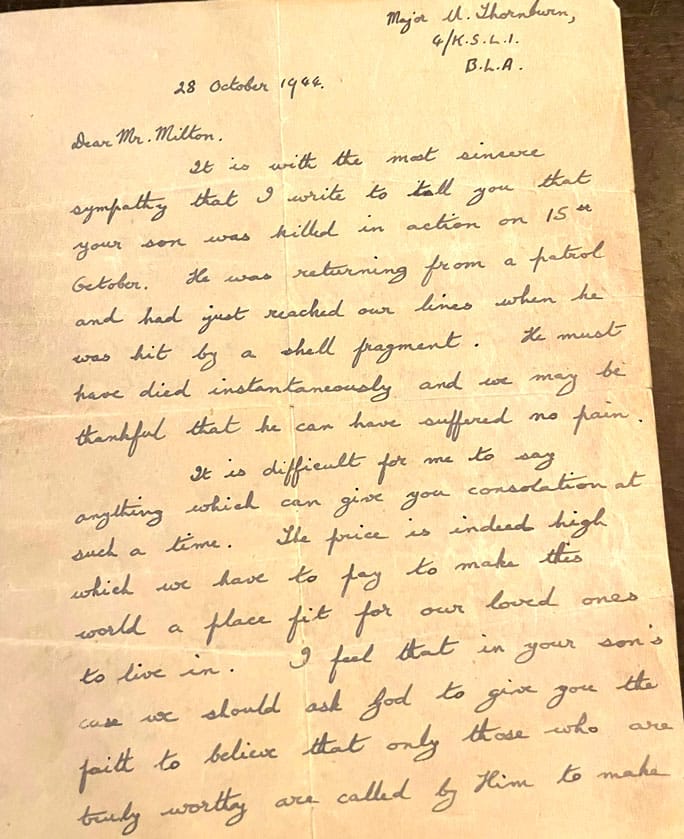 Major U. Thornburn,
4/K.S.L.I.
B.L.A.
28 October 1944.
Dear Mr. Milton.
It is with the most sincere
sympathy that I write to tell you that
your son was killed in action on 15th
October. He was returning from a patrol
and had just reached our lines when he
was hit by a shell fragment. He must
have died instantaneously and we may be
thankful that he can have suffered no pain.
It is difficult for me to say
anything which can give you consolation at
such a time. The price is indeed high
which we have to pay to make this
world a place fit for our loved ones
to live in. I feel that in your son's
case we should ask God to give you the
faith to believe that only those who are
truly worthy are called by Him to make